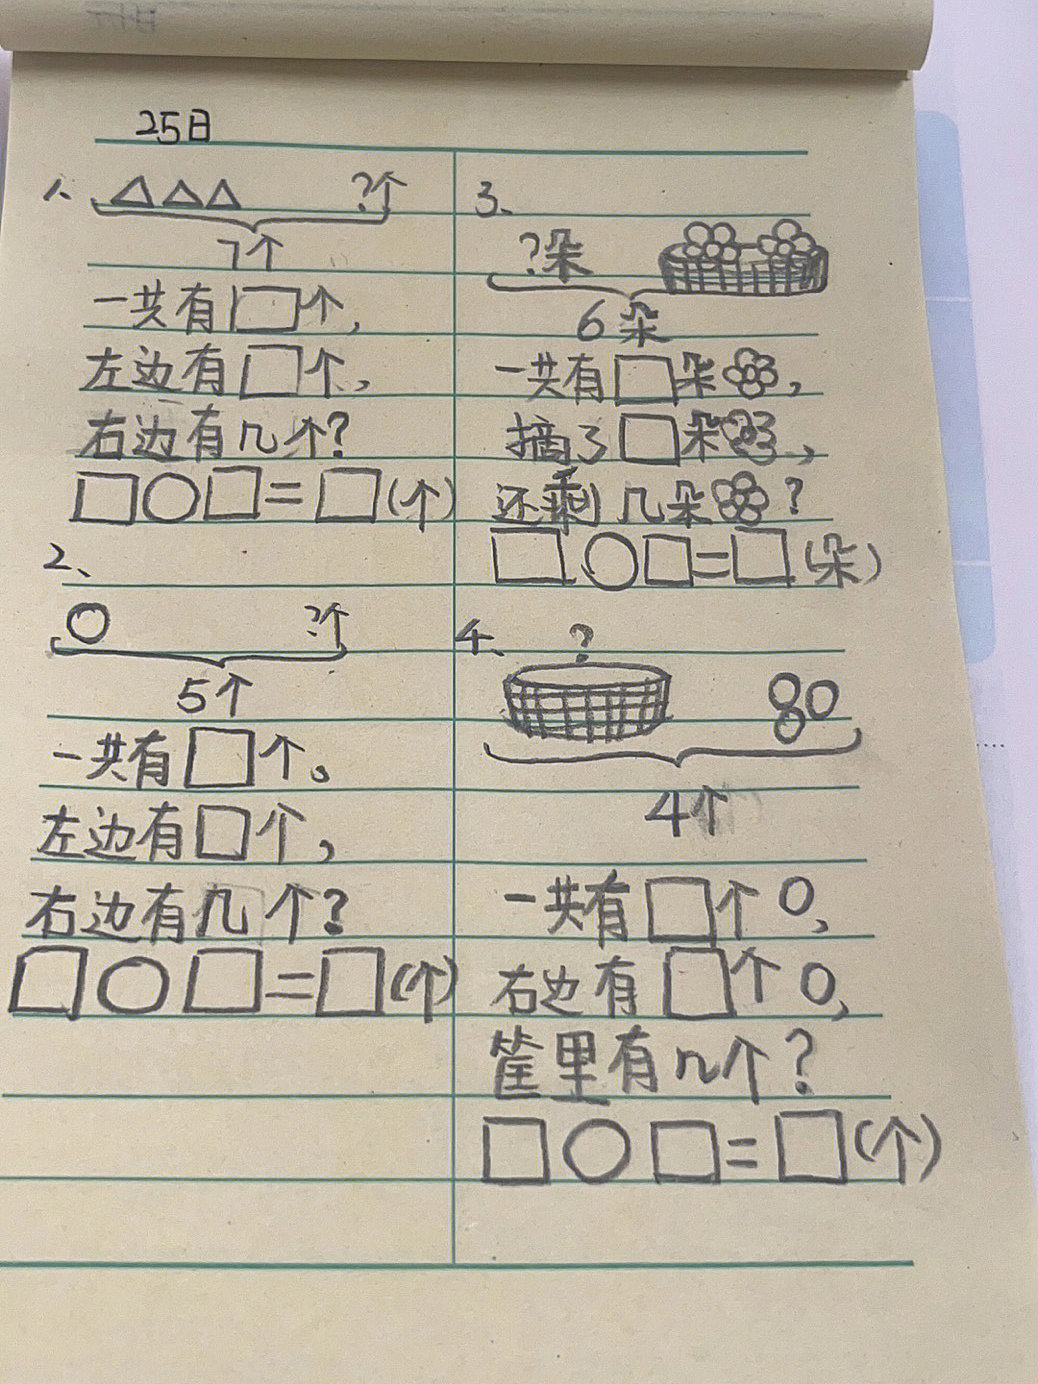 25日
1、
△△△ ?个
7个
一共有□个,
左边有□个,
右边有几个?
□○□=□(个)
2、
○ ?个
5个
一共有□个。
左边有□个,
右边有几个?
□○□=□(个)
3、
?朵
6朵
一共有□朵,
摘了□朵,
还剩几朵?
□○□=□(朵)
4、
?
4个
一共有□个○,
右边有□个○,
筐里有几个?
□○□=□(个)